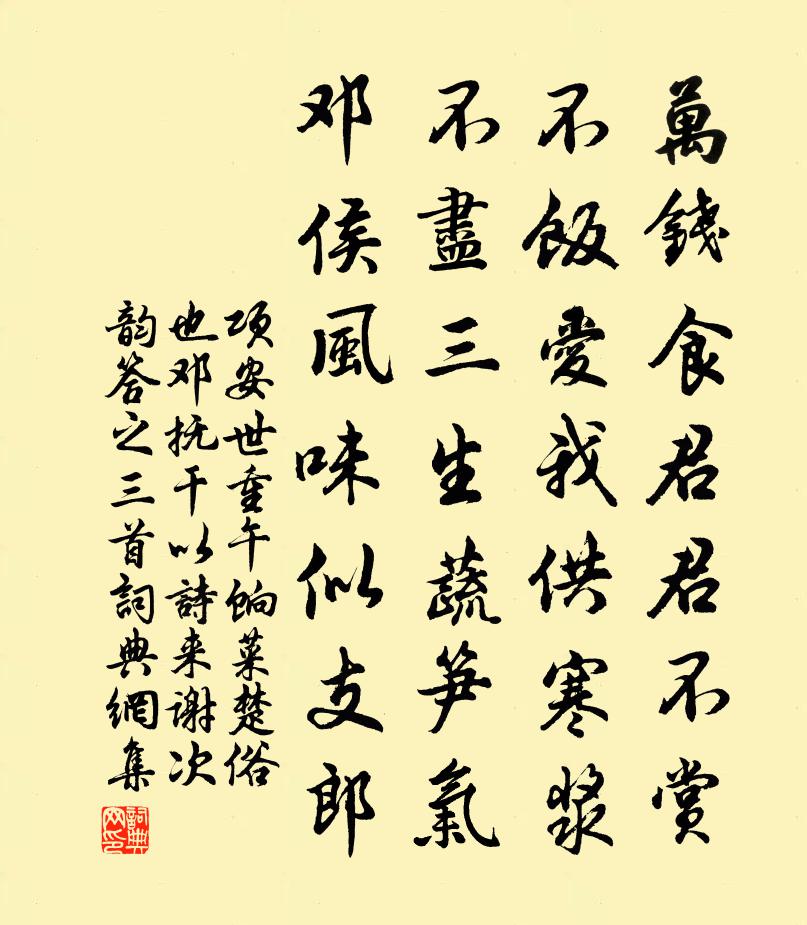 萬錢食君君不賞
不飯愛我供寒漿
不盡三生蔬笋氣
邓侯風味似支郎
项安世重午餉菜楚俗
也邓抚干以詩来谢次
韵答之三首詞典網集
詞典網印